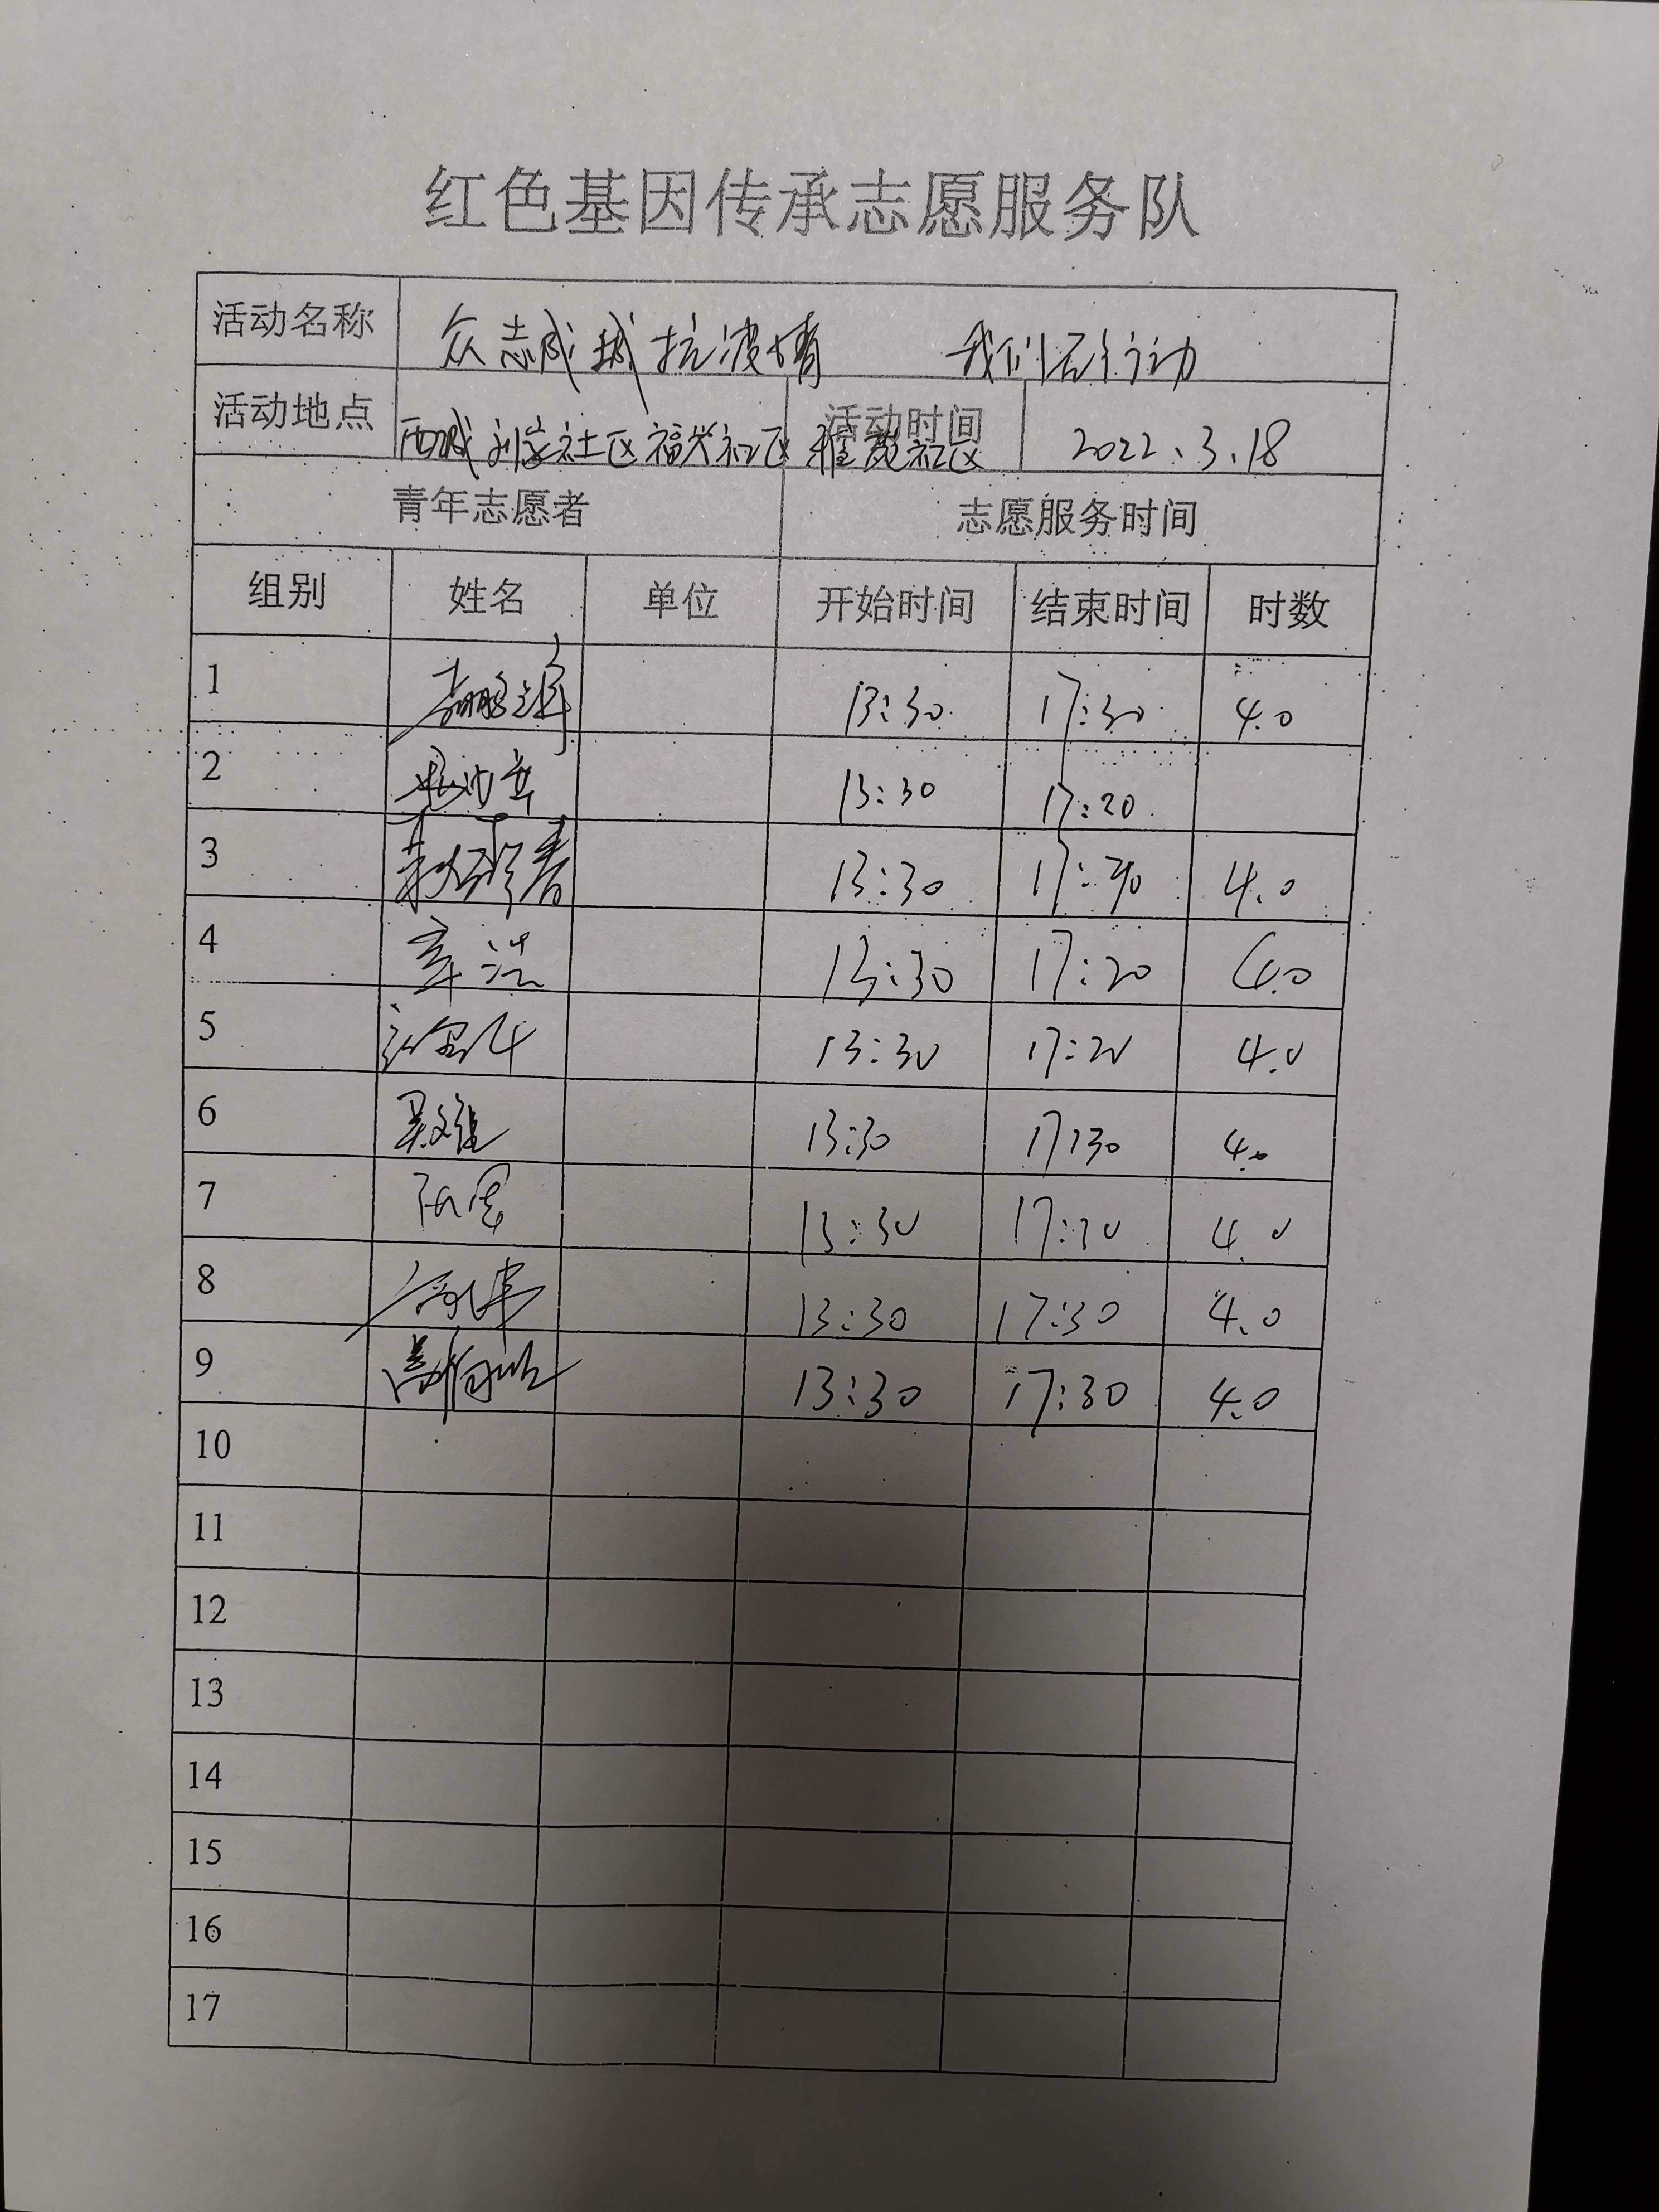 红色基因传承志愿服务队
活动名称 众志成城抗疫情 我们在行动
活动地点 西城 刘家社区 福兴社区 社区 活动时间 2022.3.18
青年志愿者 志愿服务时间
组别 姓名 单位 开始时间 结束时间 时数
1 13:30 17:30 4.0
2 13:30 17:20
3 13:30 4.0
4 章浩 13:30 17:20 4.0
5 13:30 17:20 4.0
6 13:30 17:30 4.0
7 13:30 4.0
8 13:30 17:30 4.0
9 13:30 17:30 4.0
10
11
12
13
14
15
16
17